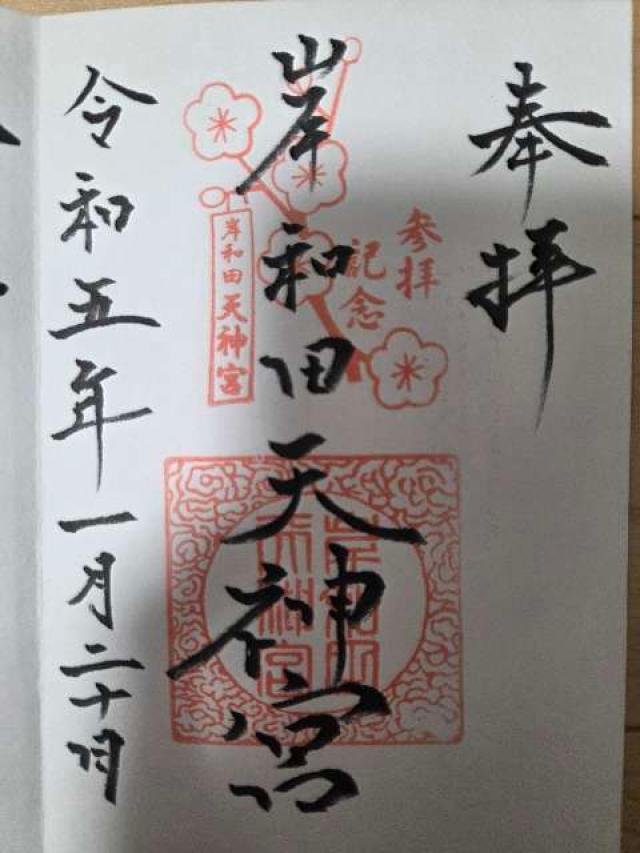 奉拝
参拝
記念
岸和田天神宮
岸和田天神宮
岸和田
天神宮
令和五年一月二十日